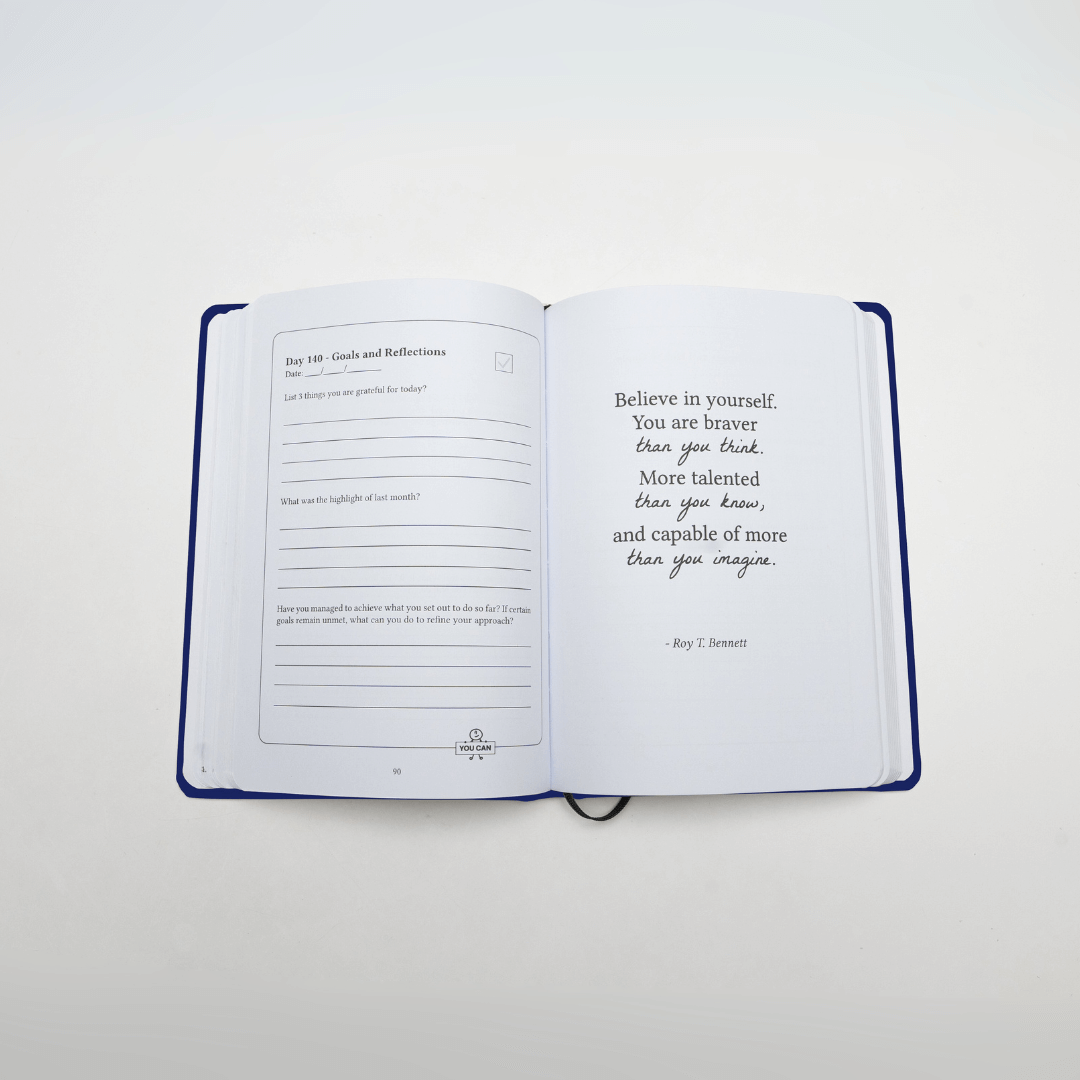 Day 140 - Goals and Reflections
Date: ___/___/_____
List 3 things you are grateful for today?
What was the highlight of last month?
Have you managed to achieve what you set out to do so far? If certain
goals remain unmet, what can you do to refine your approach?
YOU CAN
90
Believe in yourself.
You are braver
than you think.
More talented
than you know,
and capable of more
than you imagine.
- Roy T. Bennett